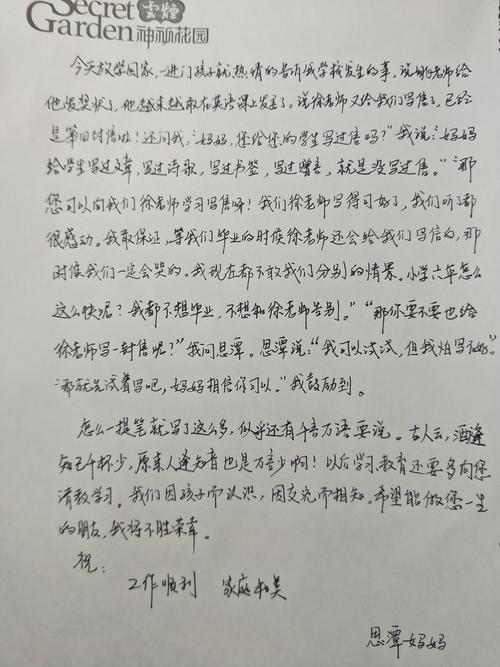 Secret
Garden 云烟
神秘花园
今天放学回家,一进门孩子就热情的告诉我学校发生的事,说 老师给
他发奖状了,他越来越敢在英语课上发言了。说徐老师又给我们写信了,已经
是第四封信啦!还问我:"妈妈,您给您的学生写过信吗?"我说:"妈妈
给学生写过文章,写过诗歌,写过书签,写过赠言,就是没写过信。""那
您可以向我们徐老师学习写信呀!我们徐老师写得可好了,我们听了都
很感动。我敢保证,等我们毕业的时候徐老师还会给我们写信的,那
时候我们一定会哭的。我现在都不敢 我们分别的情景。小学六年怎么
这么快呢?我都不想毕业,不想和徐老师告别。""那你要不要也给
徐老师写一封信呢?"我问思潭。思潭说:"我可以试试,但我怕写不好。"
"那就先试着写吧,妈妈相信你可以。"我鼓励到。
怎么一提笔就写了这么多,似乎还有千言万语要说。古人云,酒逢
知己千杯少,原来人逢知音也是万言少啊!以后学习教育还要多向您
请教学习。我们因孩子而认识,因交流而相知。希望能做您一生
的朋友,我将不胜荣幸。
祝:
工作顺利 家庭和美
思潭妈妈